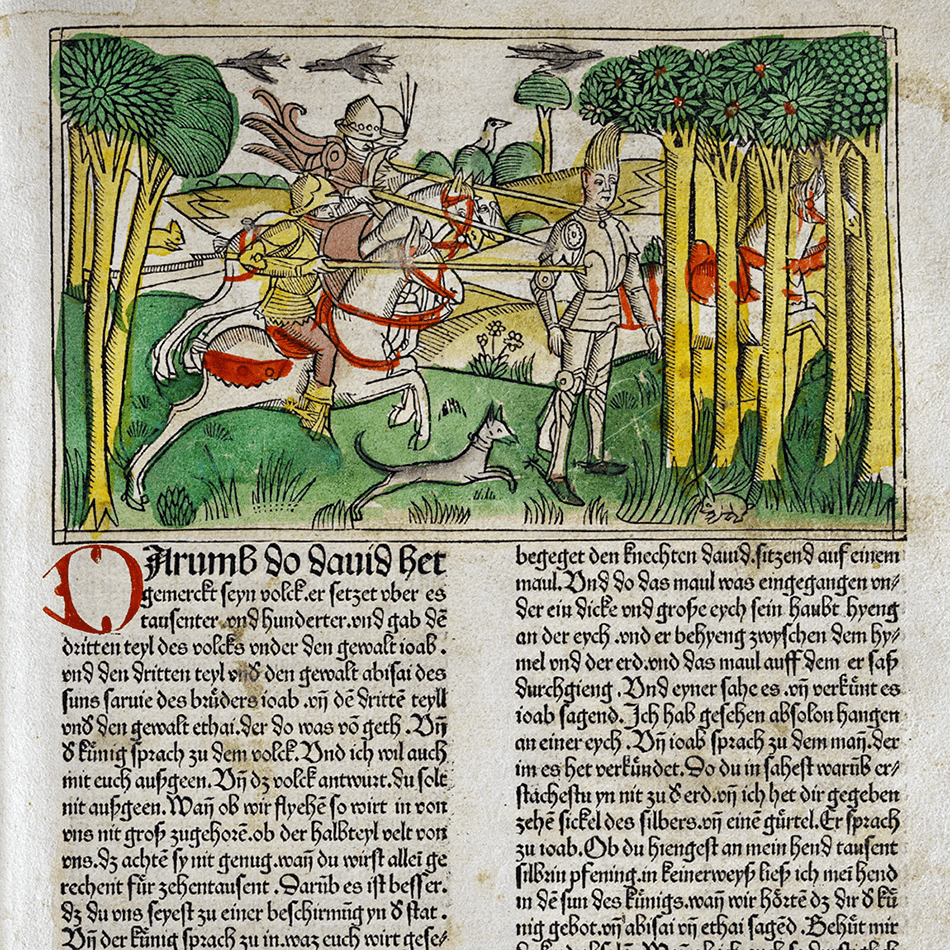 DArumb do dauid het
gemerckt seyn volck.er setzet vber es
tausenter.vnd hunderter.vnd gab dē
dritten teyl des volcks vnder den gewalt ioab.
vnd den dritten teyl vnď den gewalt abisai des
suns saruie des brůders ioab.vn̄ dē drittē teyll
vnď den gewalt ethai.der do was vō geth.Vn̄
ď kůnig sprach zu dem volck.Vnd ich wil auch
mit euch außgeen.Vn̄ dz volck antwurt.du solt
nit außgeen.Wan̄ ob wir flyehē so wirt in von
vns nit groß zugehorē.ob der halbteyl velt von
vns.dz achtē sy nit genug.wan̄ du wirst allei ge
rechent für zehentausent.Darūb es ist besser.
dz du vns seyest zu einer beschirmūg yn ď stat.
Vn̄ der kůnig sprach zu in.waz euch wirt gese-
begeget den knechten dauid.sitzend auf einem
maul.Vnd do das maul was eingegangen vn⸗
der ein dicke vnd große eych sein haubt hyeng
an der eych.vnd er behyeng zwyschen dem hy⸗
mel vnd der erd.vnd das maul auff dem er saß
durchgieng.Vnd eyner sahe es.vn̄ verkůnt es
ioab sagend.Ich hab gesehen absolon hangen
an einer eych.Vn̄ ioab sprach zu dem man̄.der
im es het verkůndet.Do du in sahest warūb er⸗
stachestu yn nit zu ď erd.vn̄ ich het dir gegeben
zehē sickel des silbers.vn̄ einē gürtel.Er sprach
zu ioab.Ob du hiengest an mein hend tausent
silbrin pfening.in keinerweyß ließ ich mei hend
in dē sun des kůnigs.wan̄ wir hörtē dz dir ď ků
nig gebot.vn̄ abisai vn̄ ethai sagēd.Behůt mir